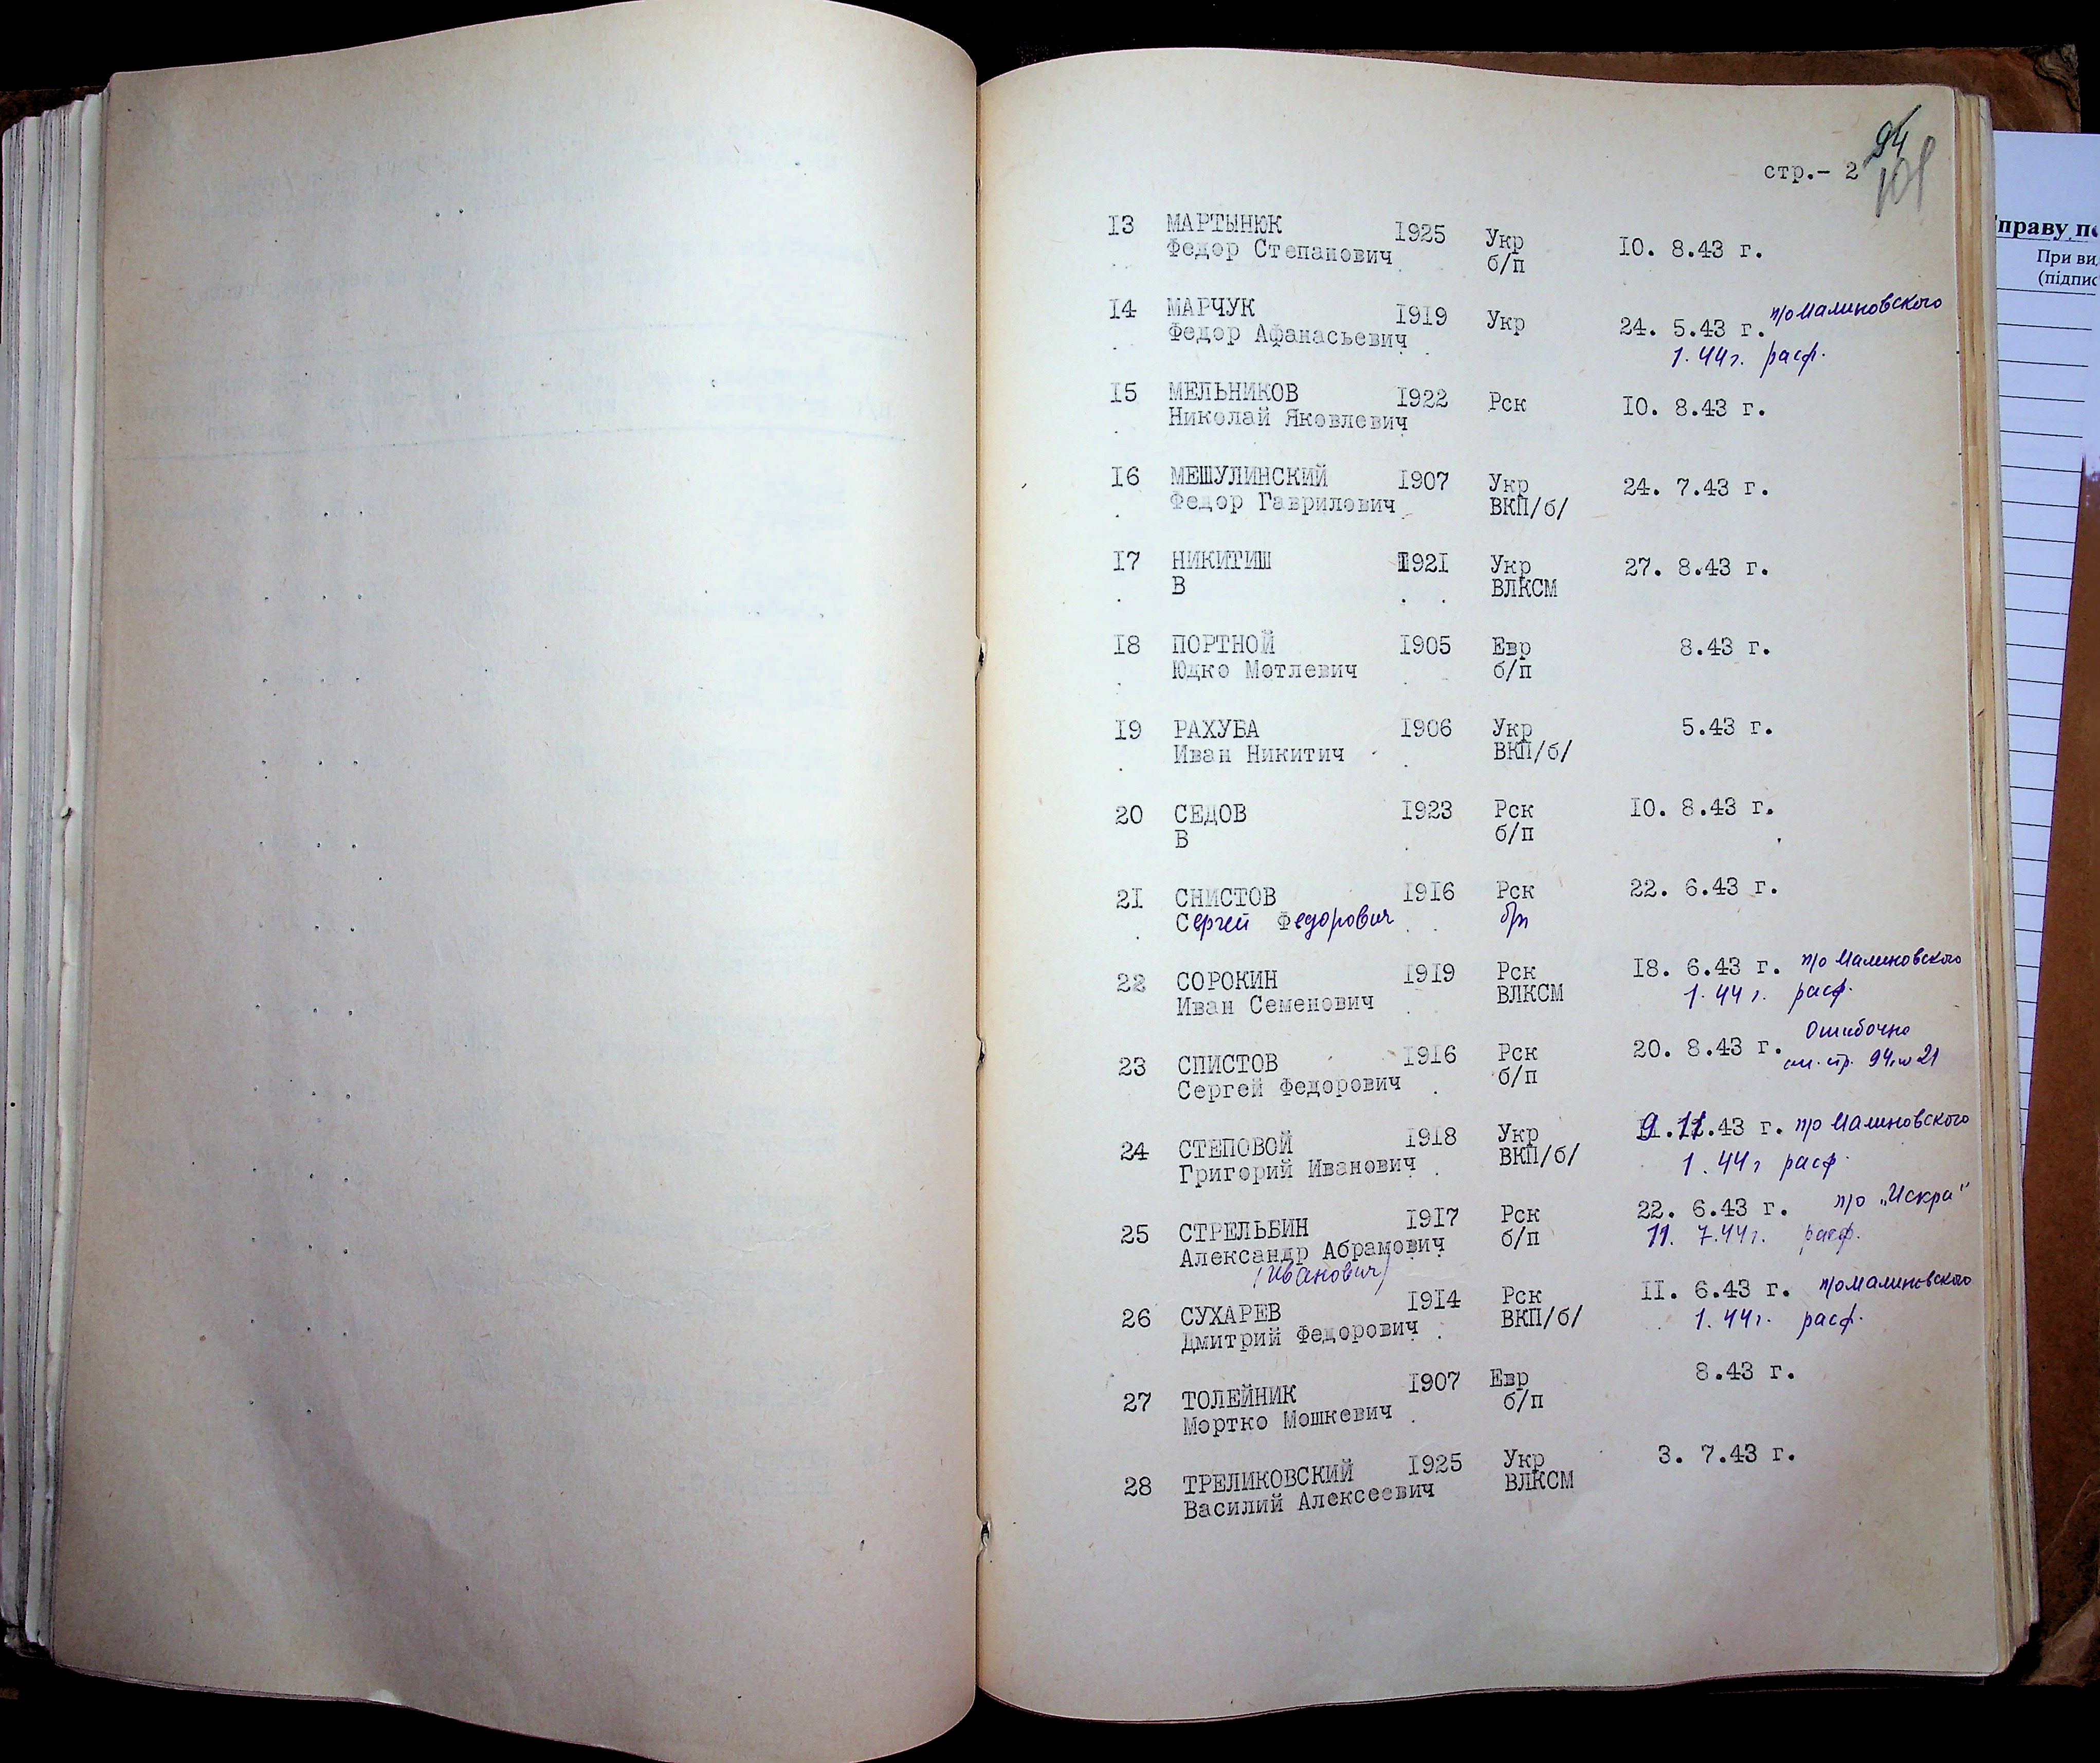 94
101
стр.- 2
13 МАРТЫНЮК 1925 Укр 10. 8.43 г.
Федор Степанович б/п
14 МАРЧУК 1919 Укр 24. 5.43 г. п/о Малиновского
Федор Афанасьевич 1.44 г. расф.
15 МЕЛЬНИКОВ 1922 Рск 10. 8.43 г.
Николай Яковлевич
16 МЕШУЛИНСКИЙ 1907 Укр 24. 7.43 г.
Федор Гаврилович ВКП/б/
17 НИКИТИШ 1921 Укр 27. 8.43 г.
В ВЛКСМ
18 ПОРТНОЙ 1905 Евр 8.43 г.
Юдко Мотлевич б/п
19 РАХУБА 1906 Укр 5.43 г.
Иван Никитич ВКП/б/
20 СЕДОВ 1923 Рск 10. 8.43 г.
В б/п
21 СНИСТОВ 1916 Рск 22. 6.43 г.
Сергей Федорович б/п
22 СОРОКИН 1919 Рск 18. 6.43 г. п/о Малиновского
Иван Семенович ВЛКСМ 1.44 г. расф.
23 СПИСТОВ 1916 Рск 20. 8.43 г. Ошибочно
Сергей Федорович б/п см. стр. 94 № 21
24 СТЕПОВОЙ 1918 Укр 9.11.43 г. п/о Малиновского
Григорий Иванович ВКП/б/ 1.44 г расф.
25 СТРЕЛЬБИН 1917 Рск 22. 6.43 г. п/о „Искра"
Александр Абрамович б/п 11. 7.44 г. расф.
(Иванович)
26 СУХАРЕВ 1914 Рск 11. 6.43 г. п/о Малиновского
Дмитрий Федорович ВКП/б/ 1.44 г. расф.
27 ТОЛЕЙНИК 1907 Евр 8.43 г.
Мортко Мошкевич б/п
28 ТРЕЛИКОВСКИЙ 1925 Укр 3. 7.43 г.
Василий Алексеевич ВЛКСМ
праву
При
(підпис